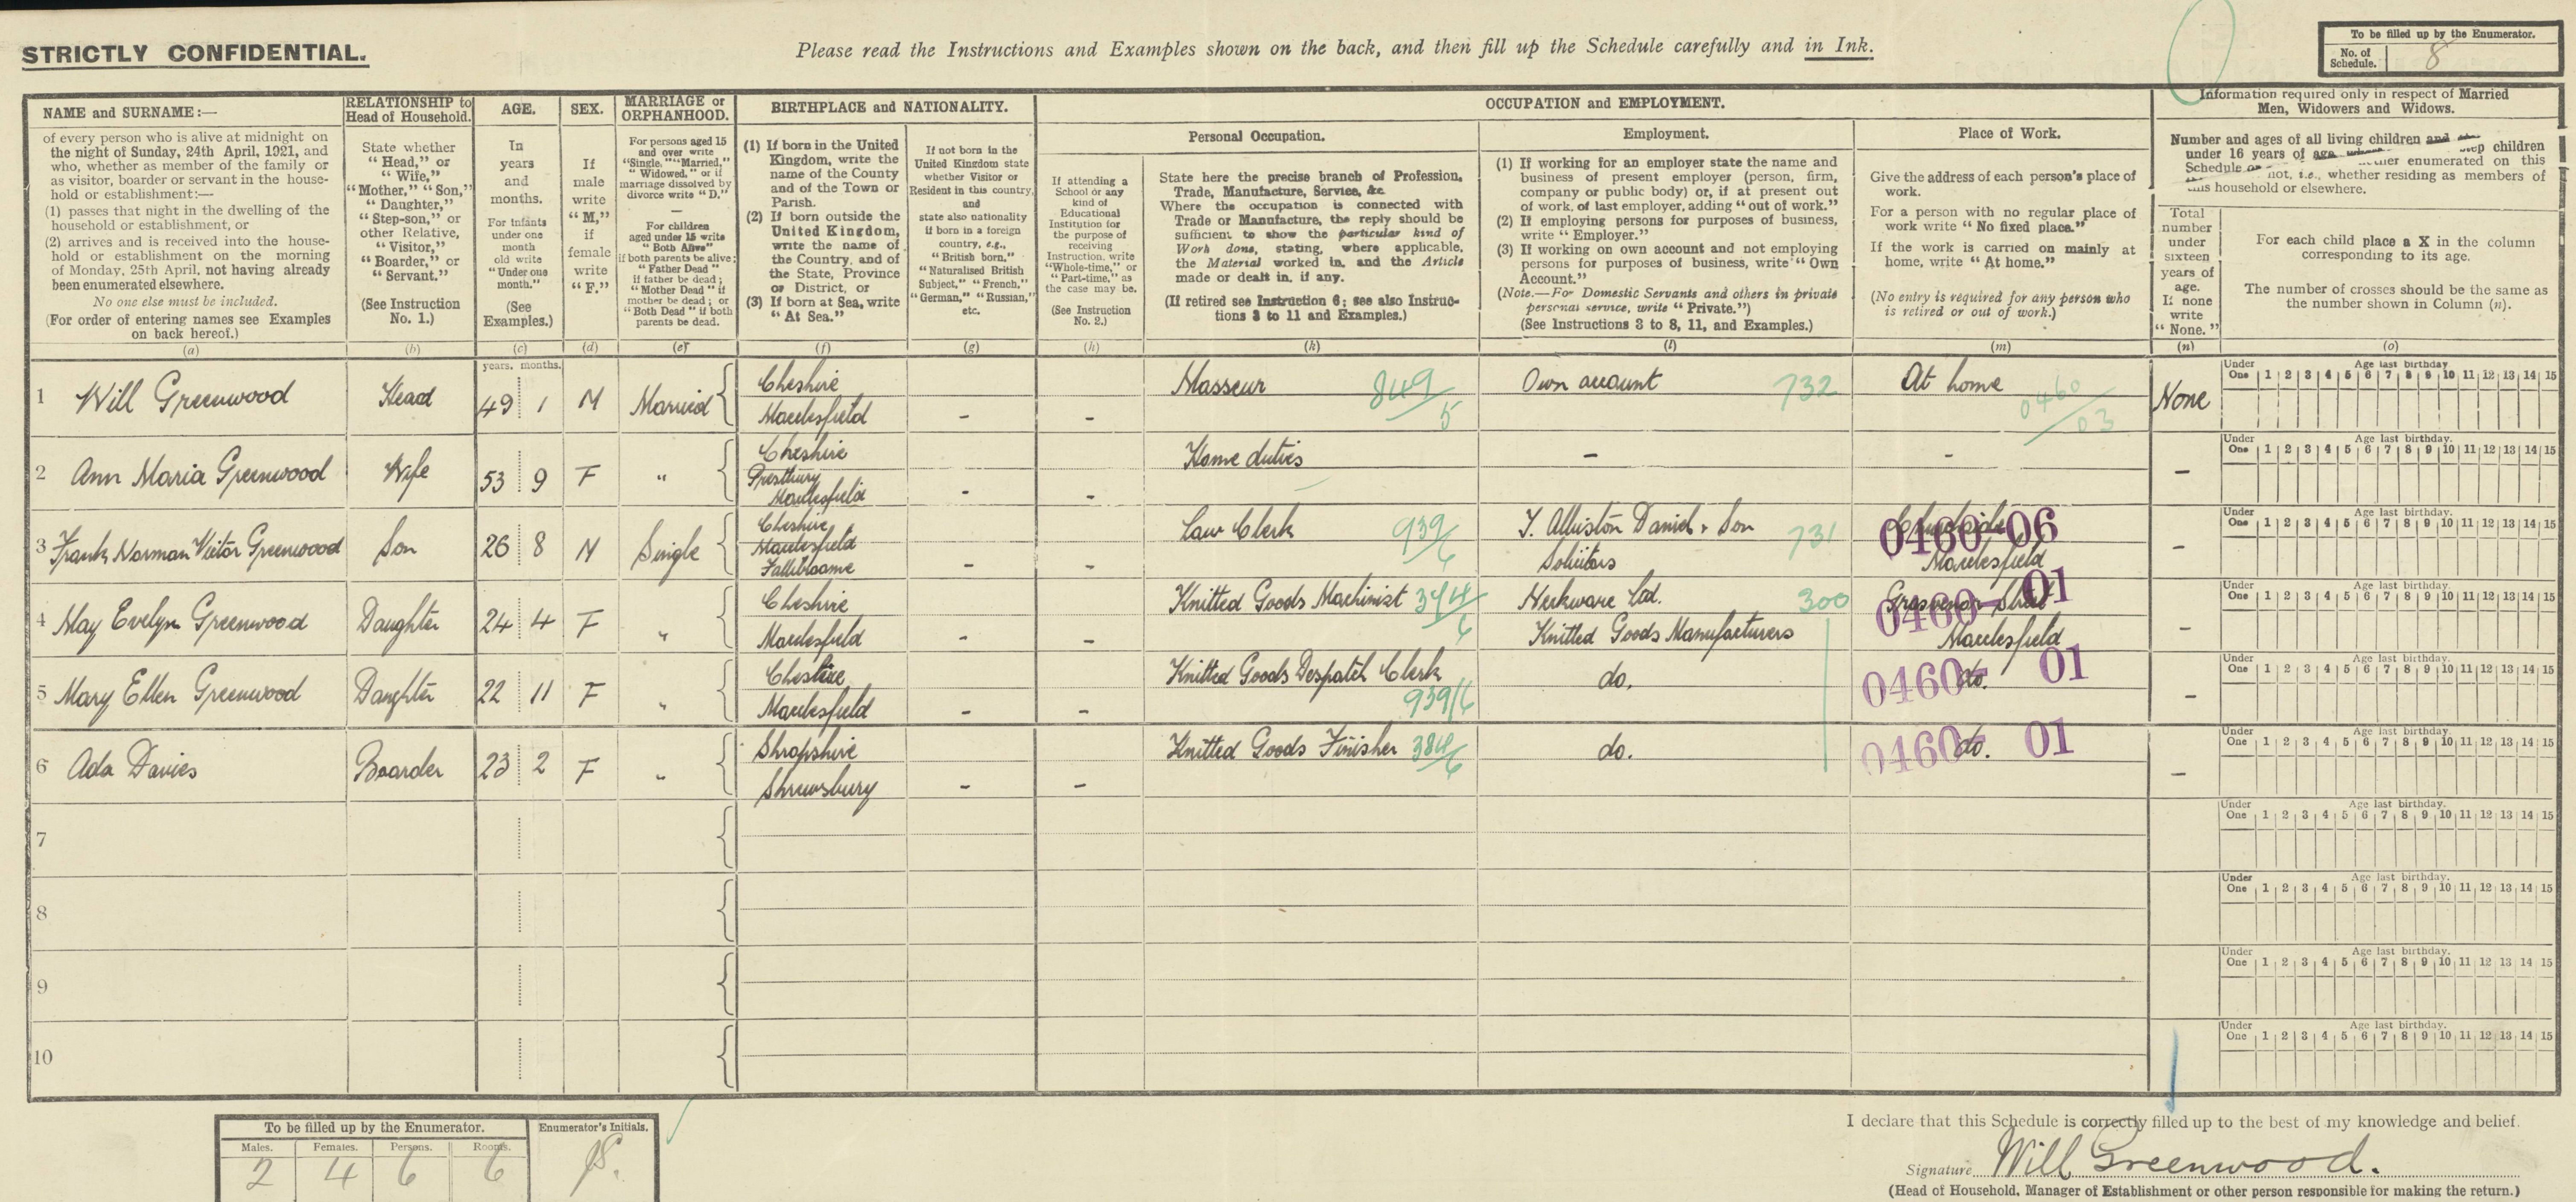 STRICTLY CONFIDENTIAL.
Please read the Instructions and Examples shown on the back, and then fill up the Schedule carefully and in Ink.
To be filled up by the Enumerator.
No. of Schedule. 8
NAME and SURNAME:—
of every person who is alive at midnight on
the night of Sunday, 24th April, 1921, and
who, whether as member of the family or
as visitor, boarder or servant in the house-
hold or establishment:—
(1) passes that night in the dwelling of the
household or establishment, or
(2) arrives and is received into the house-
hold or establishment on the morning
of Monday, 25th April, not having already
been enumerated elsewhere.
No one else must be included.
(For order of entering names see Examples
on back hereof.)
(a)
RELATIONSHIP to
Head of Household.
State whether
"Head," or
"Wife,"
"Mother," "Son,"
"Daughter,"
"Step-son," or
other Relative,
"Visitor,"
"Boarder," or
"Servant."
(See Instruction
No. 1.)
(b)
AGE.
In
years
and
months.
For infants
under one
month
old write
"Under one
month."
(See
Examples.)
(c)
SEX.
If
male
write
"M,"
if
female
write
"F."
(d)
MARRIAGE or
ORPHANHOOD.
For persons aged 15
and over write
"Single," "Married,"
"Widowed," or if
marriage dissolved by
divorce write "D."
—
For children
aged under 15 write
"Both Alive"
if both parents be alive;
"Father Dead"
if father be dead;
"Mother Dead" if
mother be dead; or
"Both Dead" if both
parents be dead.
(e)
BIRTHPLACE and NATIONALITY.
(1) If born in the United
Kingdom, write the
name of the County
and of the Town or
Parish.
(2) If born outside the
United Kingdom,
write the name of
the Country, and of
the State, Province
or District, or
(3) If born at Sea, write
"At Sea."
(f)
If not born in the
United Kingdom state
whether Visitor or
Resident in this country,
and
state also nationality
if born in a foreign
country, e.g.,
"British born,"
"Naturalised British
Subject," "French,"
"German," "Russian,"
etc.
(g)
OCCUPATION and EMPLOYMENT.
If attending a
School or any
kind of
Educational
Institution for
the purpose of
receiving
Instruction, write
"Whole-time," or
"Part-time," as
the case may be.
(See Instruction
No. 2.)
(h)
Personal Occupation.
State here the precise branch of Profession,
Trade, Manufacture, Service, &c.
Where the occupation is connected with
Trade or Manufacture, the reply should be
sufficient to show the particular kind of
Work done, stating, where applicable,
the Material worked in, and the Article
made or dealt in, if any.
(If retired see Instruction 6; see also Instruc-
tions 3 to 11 and Examples.)
(k)
Employment.
(1) If working for an employer state the name and
business of present employer (person, firm,
company or public body) or, if at present out
of work, of last employer, adding "out of work."
(2) If employing persons for purposes of business,
write "Employer."
(3) If working on own account and not employing
persons for purposes of business, write "Own
Account."
(Note.—For Domestic Servants and others in private
personal service, write "Private.")
(See Instructions 3 to 8, 11, and Examples.)
(l)
Place of Work.
Give the address of each person's place of
work.
For a person with no regular place of
work write "No fixed place."
If the work is carried on mainly at
home, write "At home."
(No entry is required for any person who
is retired or out of work.)
(m)
Information required only in respect of Married
Men, Widowers and Widows.
Number and ages of all living children and step children
under 16 years of age enumerated on this
Schedule or not, i.e., whether residing as members of
this household or elsewhere.
Total
number
under
sixteen
years of
age.
If none
write
"None."
(n)
For each child place a X in the column
corresponding to its age.
The number of crosses should be the same as
the number shown in Column (n).
(o)
years. months.
1 Will Greenwood Head 49 1 M Married Cheshire Macclesfield - - Masseur 849/5 Own account 732 At home 0460/03 None
Under One Age last birthday 1 2 3 4 5 6 7 8 9 10 11 12 13 14 15
2 Ann Maria Greenwood Wife 53 9 F " Cheshire Prestbury Macclesfield - - Home duties - - -
Under One Age last birthday. 1 2 3 4 5 6 7 8 9 10 11 12 13 14 15
3 Frank Norman Victor Greenwood Son 26 8 M Single Cheshire Macclesfield Fallibroome - - Law Clerk 939/6 T. Alliston Daniel & Son Solicitors 731 0460-06 Macclesfield -
Under One Age last birthday. 1 2 3 4 5 6 7 8 9 10 11 12 13 14 15
4 May Evelyn Greenwood Daughter 24 4 F " Cheshire Macclesfield - - Knitted Goods Machinist 374/6 Neckware Ltd. Knitted Goods Manufacturers 300 Grosvenor Street Macclesfield 0460-01 -
Under One Age last birthday. 1 2 3 4 5 6 7 8 9 10 11 12 13 14 15
5 Mary Ellen Greenwood Daughter 22 11 F " Cheshire Macclesfield - - Knitted Goods Despatch Clerk 939/6 do. do. 0460-01 -
Under One Age last birthday. 1 2 3 4 5 6 7 8 9 10 11 12 13 14 15
6 Ada Davies Boarder 23 2 F " Shropshire Shrewsbury - - Knitted Goods Finisher 384/6 do. do. 0460-01 -
Under One Age last birthday. 1 2 3 4 5 6 7 8 9 10 11 12 13 14 15
7
Under One Age last birthday. 1 2 3 4 5 6 7 8 9 10 11 12 13 14 15
8
Under One Age last birthday. 1 2 3 4 5 6 7 8 9 10 11 12 13 14 15
9
Under One Age last birthday. 1 2 3 4 5 6 7 8 9 10 11 12 13 14 15
10
Under One Age last birthday. 1 2 3 4 5 6 7 8 9 10 11 12 13 14 15
To be filled up by the Enumerator.
Males. Females. Persons. Rooms.
2 4 6 6
Enumerator's Initials.
I declare that this Schedule is correctly filled up to the best of my knowledge and belief.
Signature Will Greenwood.
(Head of Household, Manager of Establishment or other person responsible for making the return.)